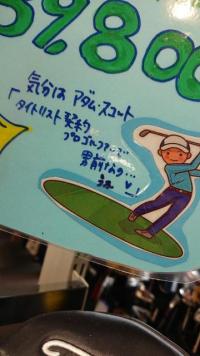 39,800
気分は アダム・スコート
「タイトリスト 契約
プロゴルファーで
男前すより…